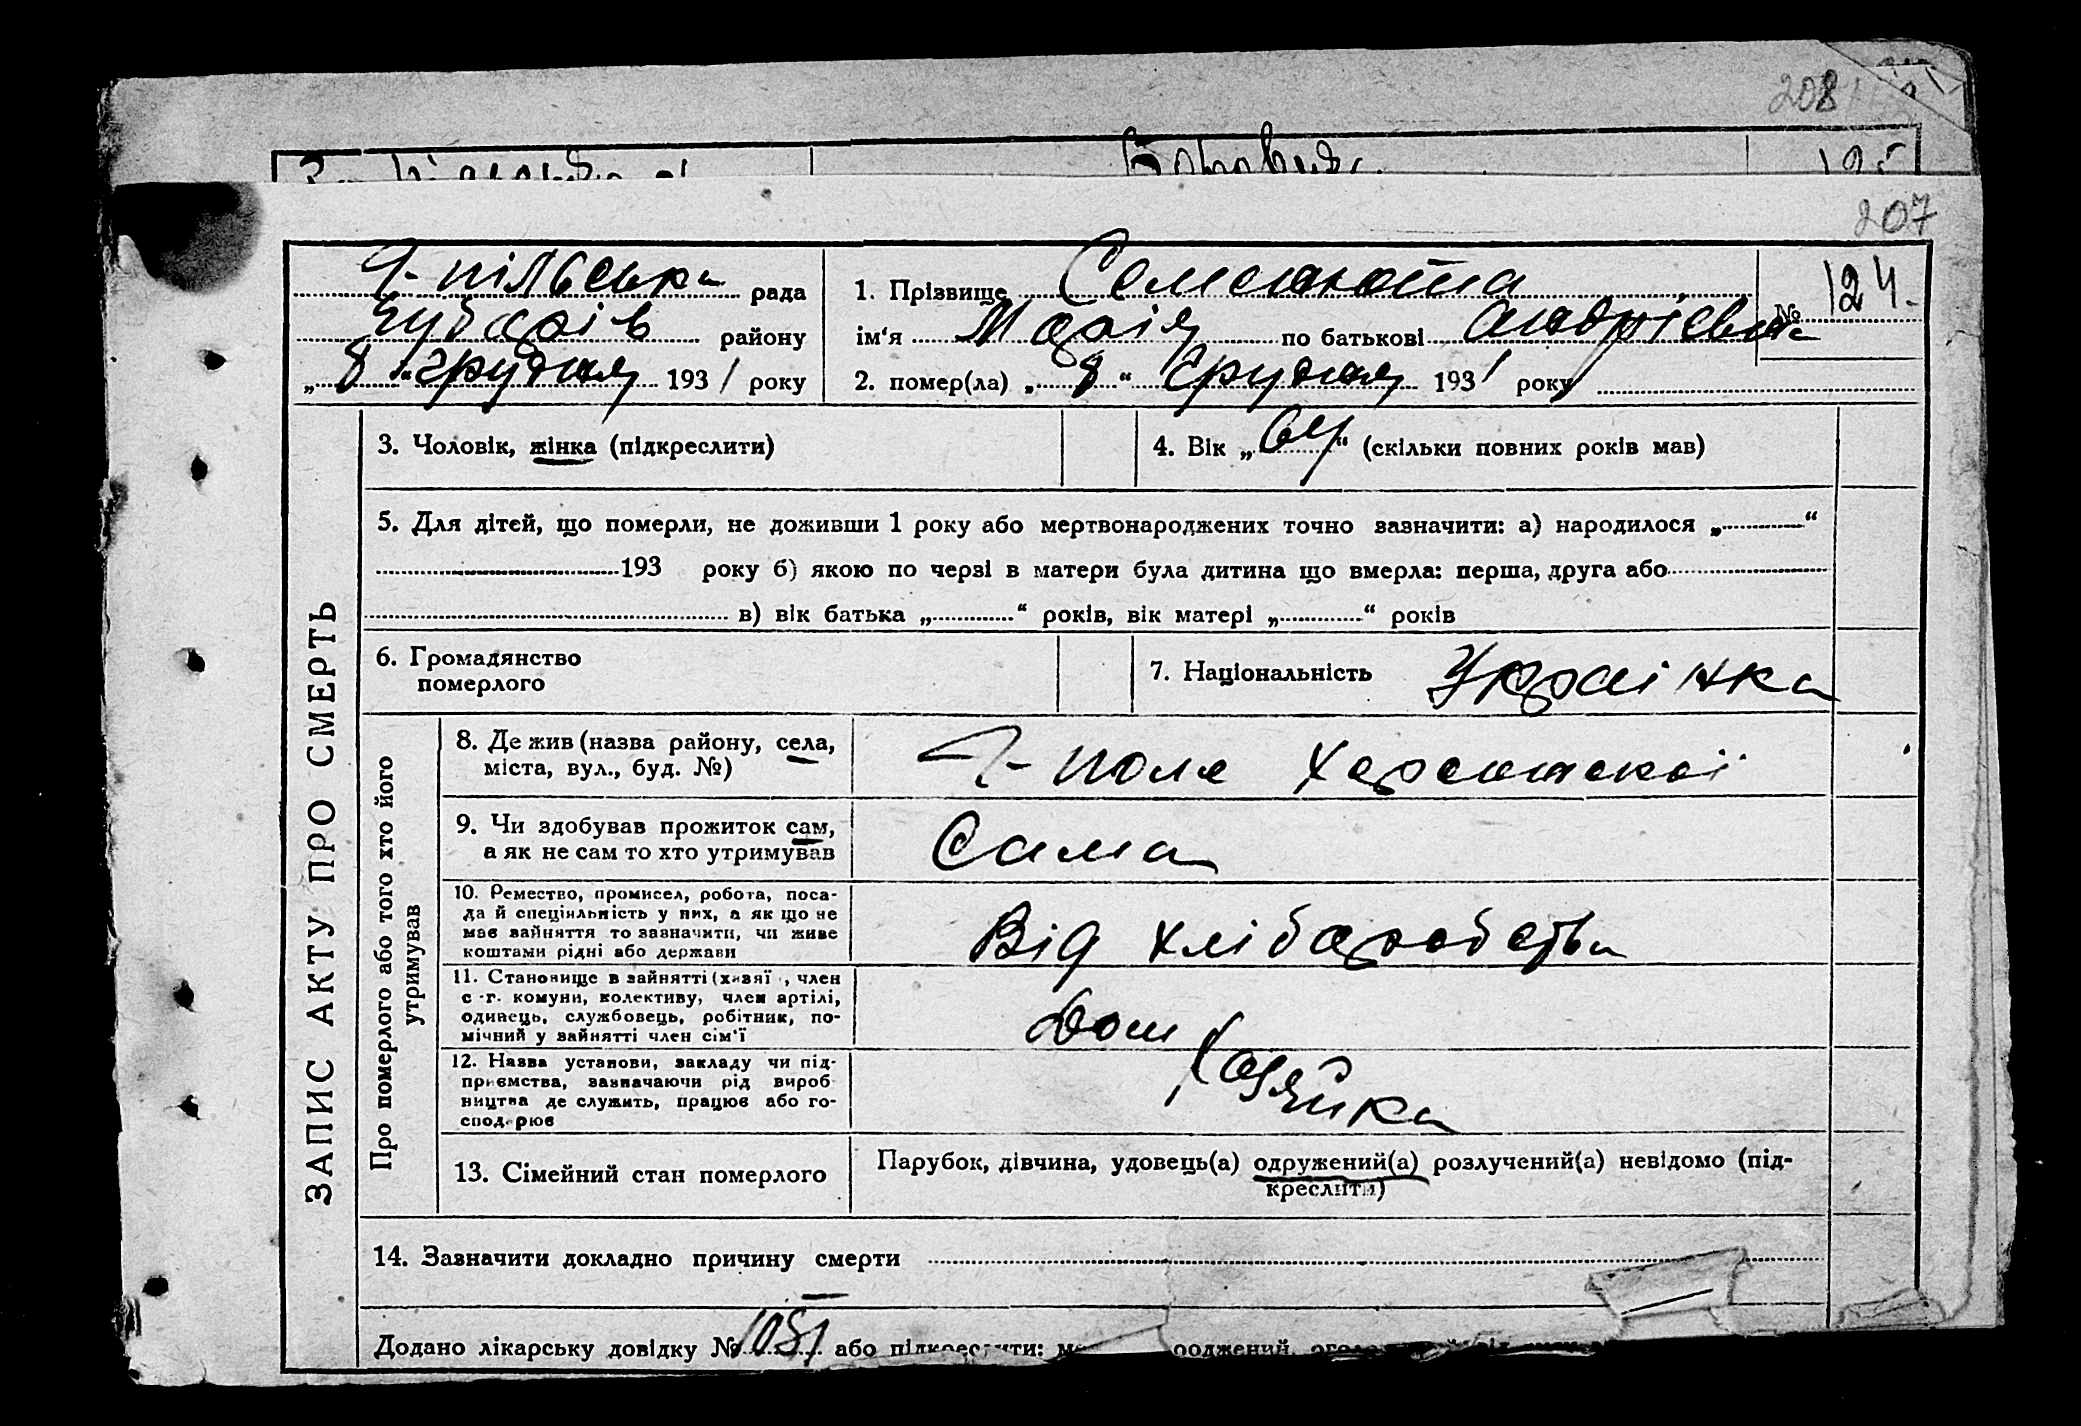 208
207
Г-пільська рада
району
„ 8 “ грудня 193 1 року
1. Прізвище Семенюта
ім‘я Марія по батькові Андріевна
№ 124.
2. помер(ла) „ 8 “ Грудня 193 1 року
ЗАПИС АКТУ ПРО СМЕРТЬ
3. Чоловік, жінка (підкреслити)
4. Вік „ 64 “ (скільки повних років мав)
5. Для дітей, що померли, не доживши 1 року або мертвонароджених точно зазначити: а) народилося „ “
193 року б) якою по черзі в матери була дитина що вмерла: перша, друга або
в) вік батька „ “ років, вік матері „ “ років
6. Громадянство
померлого
7. Національність Українка
Про померлого або того хто його
утримував
8. Де жив (назва району, села,
міста, вул., буд. №)
Г-поле
9. Чи здобував прожиток сам,
а як не сам то хто утримував
Сама
10. Ремество, промисел, робота, поса-
да й спеціяльність у них, а як що не
має зайняття то зазначити, чи живе
коштами рідні або держави
Від хліборобства
11. Становище в зайнятті (хазяї , член
с.-г. комуни, колективу, член артілі,
одинець, службовець, робітник, по-
мічний у зайнятті член сім‘ї
Дом Хазяйка
12. Назва установи, закладу чи під-
приємства, зазначаючи рід вироб
ництва де служить, працює або го-
сподарює
13. Сімейний стан померлого
Парубок, дівчина, удовець(а) одружений(а) розлучений(а) невідомо (під-
креслити)
14. Зазначити докладно причину смерти
Додано лікарську довідку № 1051 або підкреслити: